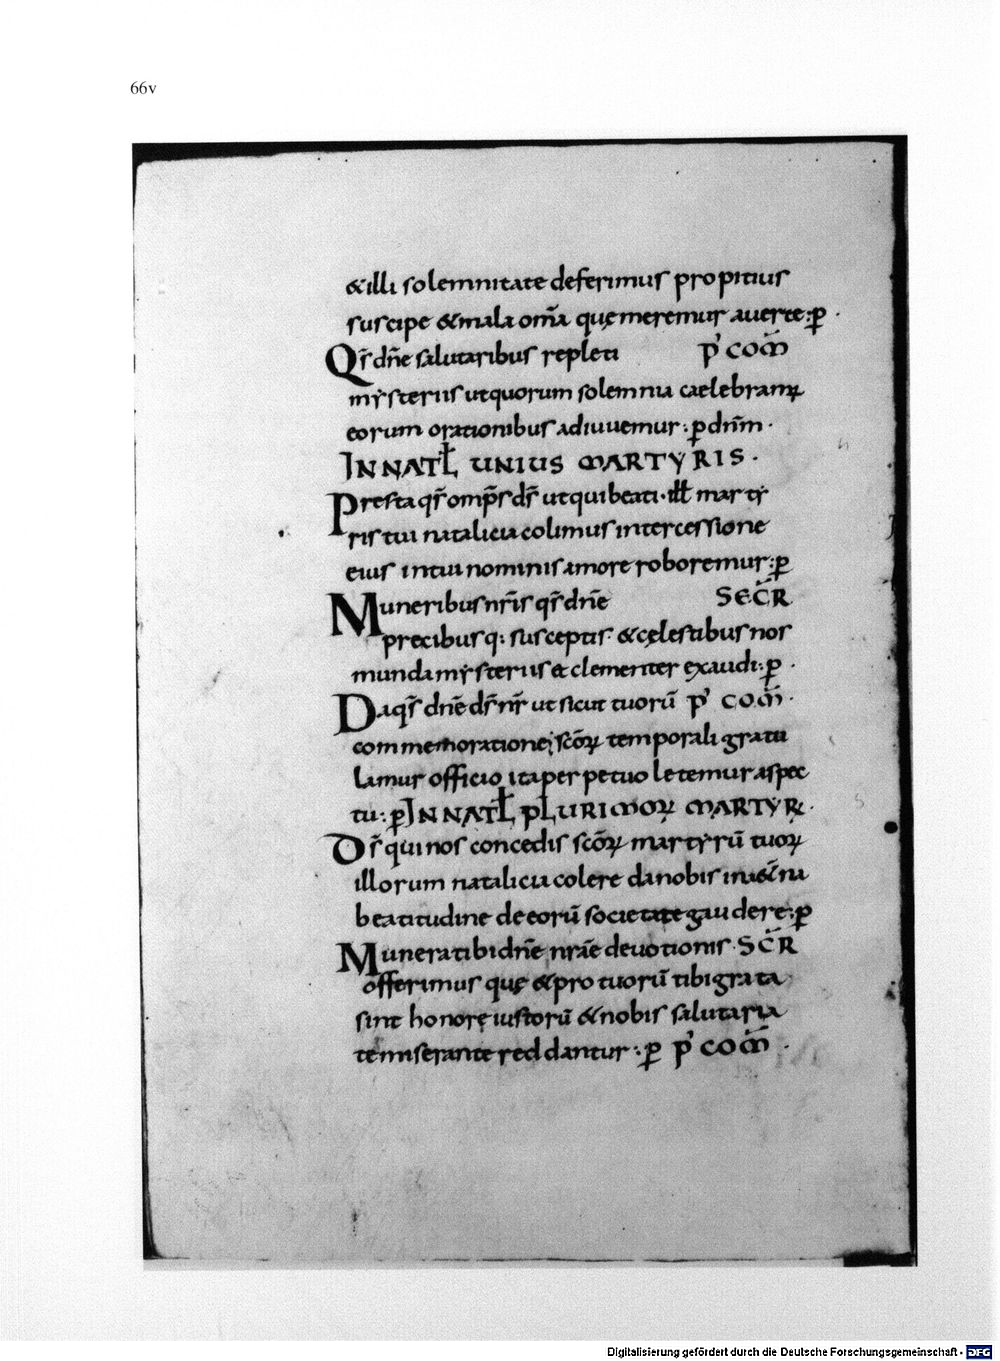 66v
&illi solemnitate deferimus propitius
suscipe &mala om̄a quę meremur auerte:p̱
Qs̄ dn̄e salutaribus repleti p' com̄
mẏsteriis utquorum solemnia caelebramꝛ
eorum orationibus adiuuemur:p̱dnm̄·
IN NATL̄ UNIUS MARTYRIS·
Presta qs̄ omp̄s ds̄ utqui beati·ill̄ martẏ
ris tui natalicia colimus intercessione
eius intui nominis amore roboremur:p̱
Muneribus nr̄is qs̄ dn̄e SECR̄
precibusq: susceptis &cęlestibus nos
munda mẏsteriis et clementer exaudi:p̱·
Da qs̄ dn̄e ds̄ nr̄ ut sicut tuorū p' com̄·
commemoratione scōꝝ temporali gratu
lamur officio ita perpetuo letemur aspec
tu:p̱ IN NATL̄ PLURIMOꝝ MARTYꝝ·
Ds̄ qui nos concedis scōꝝ martẏrū tuoꝝ
illorum natalicia colere da nobis in&̄na
beatitudine de eorū societate gaudere:p̱
Munera tibi dn̄e nrāe deuotionis·SCR̄
offerimus quę &pro tuorū tibi grata
sint honore iustorū &nobis salutaria
te miserante reddantur:p̱ p' com̄·
Digitalisierung gefördert durch die Deutsche Forschungsgemeinschaft - DFG